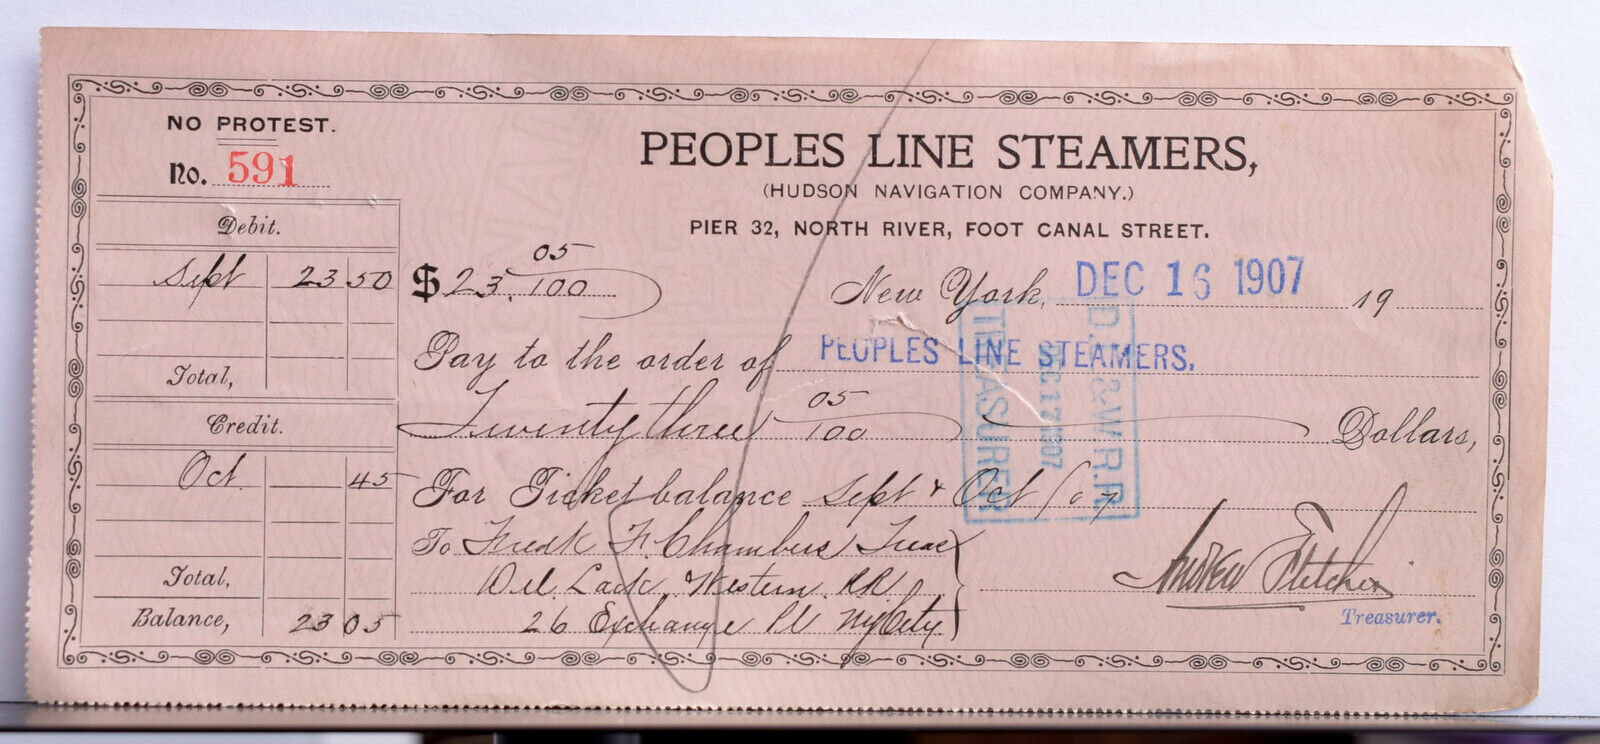 NO PROTEST.
No. 591
Debit.
Sept 23 50
Total,
Credit.
Oct. 45
Total,
Balance, 23 05
PEOPLES LINE STEAMERS,
(HUDSON NAVIGATION COMPANY.)
PIER 32, NORTH RIVER, FOOT CANAL STREET.
$ 23. 05/100
New York, DEC 16 1907 19
Pay to the order of PEOPLES LINE STEAMERS.
Twenty three 05/100 Dollars,
For Ticket balance Sept & Oct /07
To Fredk F. Chambers Treas
Del. Lack. Western RR
26 Exchange Pl NY City
Andrew Fletcher
Treasurer.
D.L.&W.R.R.
DEC 17 1907
TREASURER